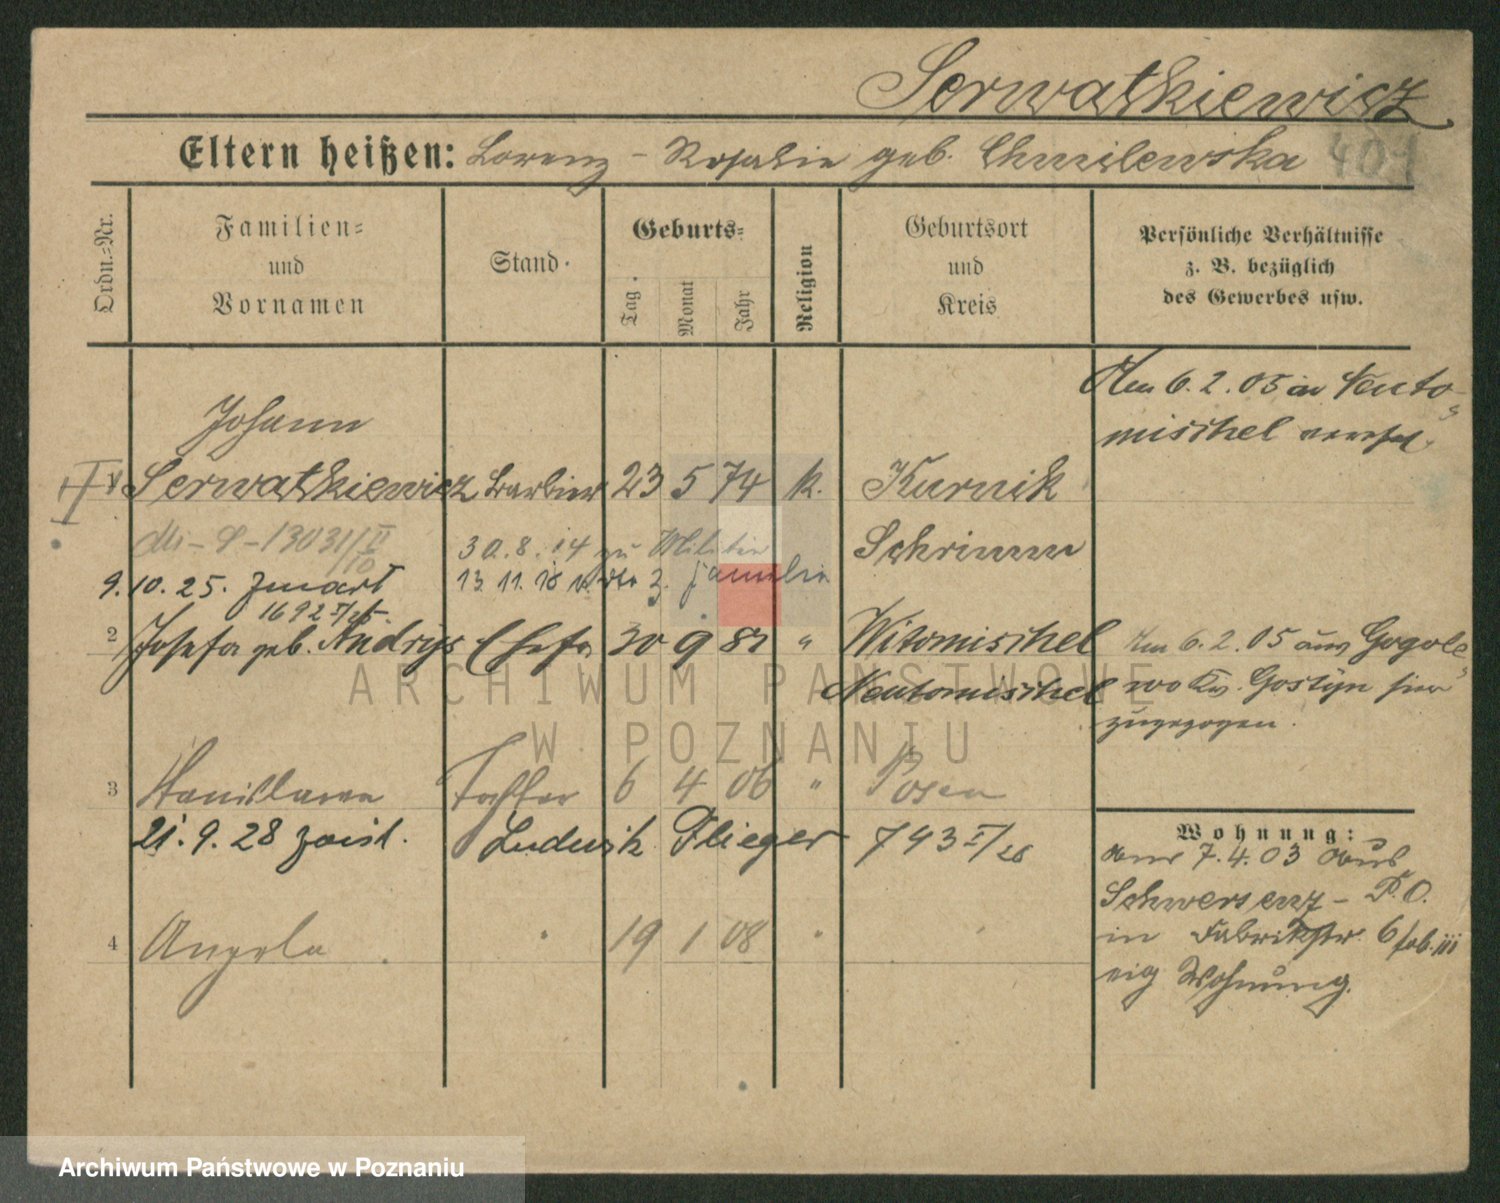 Serwatkiewicz
401
Eltern heißen: Lorenz - Rosalie geb. Chmilewska
Ordn.=Nr.
Familien=
und
Vornamen
Stand.
Geburts=
Tag.
Monat
Jahr
Religion
Geburtsort
und
Kreis
Persönliche Verhältnisse
z. B. bezüglich
des Gewerbes usw.
Am 6.2.05 in Neuto-
mischel
Johann
Serwatkiewicz Barbier 23 5 74 k. Kurnik
Schrimm
13031/II
30.8.14 zu Militär
9.10.25. zmarł
13.11.18 z. Familie
1692 I/25.
2 Josefa geb. Andrys Ehefr. 30 9 82 " Witomischel
Neutomischel
Am 6.2.05 aus Gogole-
wo Kr. Gostyn hier
zugezogen.
3 Stanislawa Tochter 6 4 06 " Posen
21.9.28 zaśl. Ludwik Flieger 743 I/28
4 Angela " 19 1 08 " "
Wohnung:
7.4.03 aus
Schwersenz - P.O.
in Fabrikstr. 6
eig Wohnung.
ARCHIWUM PAŃSTWOWE
W POZNANIU
Archiwum Państwowe w Poznaniu